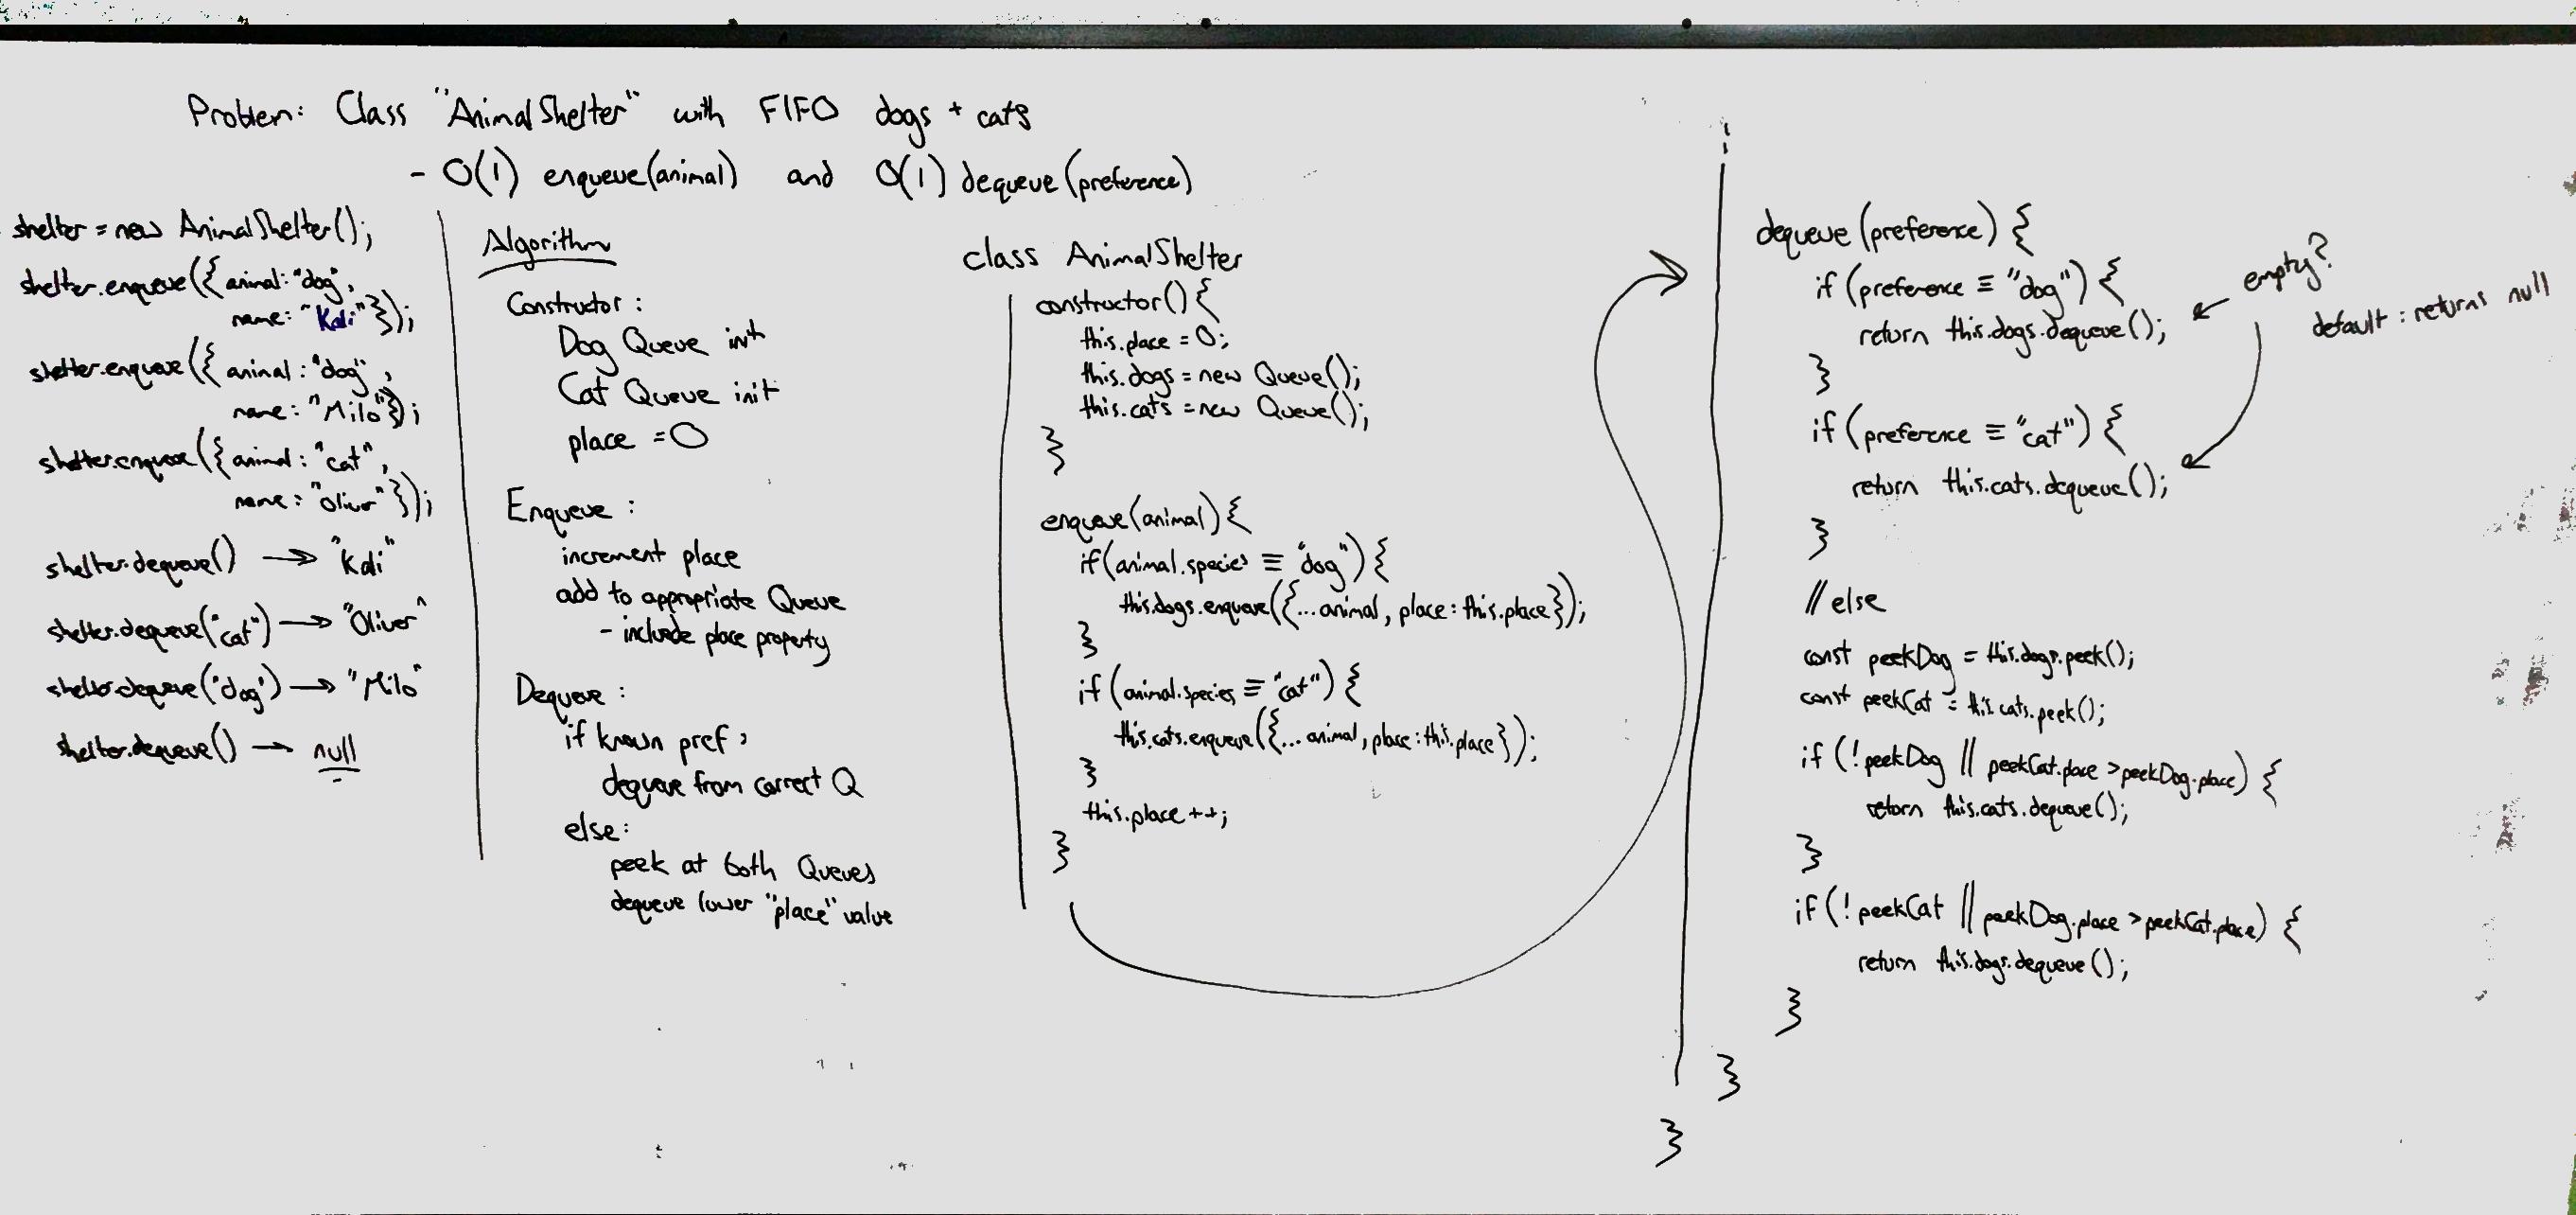 Problem: Class "AnimalShelter" with FIFO dogs + cats
- O(1) enqueue(animal) and O(1) dequeue(preference)
shelter = new AnimalShelter();
shelter.enqueue({animal:"dog",
name: "Kali"});
shelter.enqueue({animal: "dog",
name: "Milo"});
shelter.enqueue({animal: "cat",
name: "Oliver"});
shelter.dequeue() → "Kali"
shelter.dequeue("cat") → "Oliver"
shelter.dequeue("dog") → "Milo"
shelter.dequeue() → null
Algorithm
Constructor:
Dog Queue init
Cat Queue init
place = 0
Enqueue:
increment place
add to appropriate Queue
- include place property
Dequeue:
if known pref:
dequeue from correct Q
else:
peek at both Queues
dequeue lower "place" value
class AnimalShelter
constructor() {
this.place = 0;
this.dogs = new Queue();
this.cats = new Queue();
}
enqueue(animal) {
if(animal.species ≡ "dog") {
this.dogs.enqueue({...animal, place: this.place});
}
if(animal.species ≡ "cat") {
this.cats.enqueue({...animal, place: this.place});
}
this.place++;
}
dequeue(preference) {
if(preference ≡ "dog") {
return this.dogs.dequeue();
}
if(preference ≡ "cat") {
return this.cats.dequeue();
}
// else
const peekDog = this.dogs.peek();
const peekCat = this.cats.peek();
if (!peekDog || peekCat.place > peekDog.place) {
return this.cats.dequeue();
}
if (!peekCat || peekDog.place > peekCat.place) {
return this.dogs.dequeue();
}
}
}
empty?
default: returns null